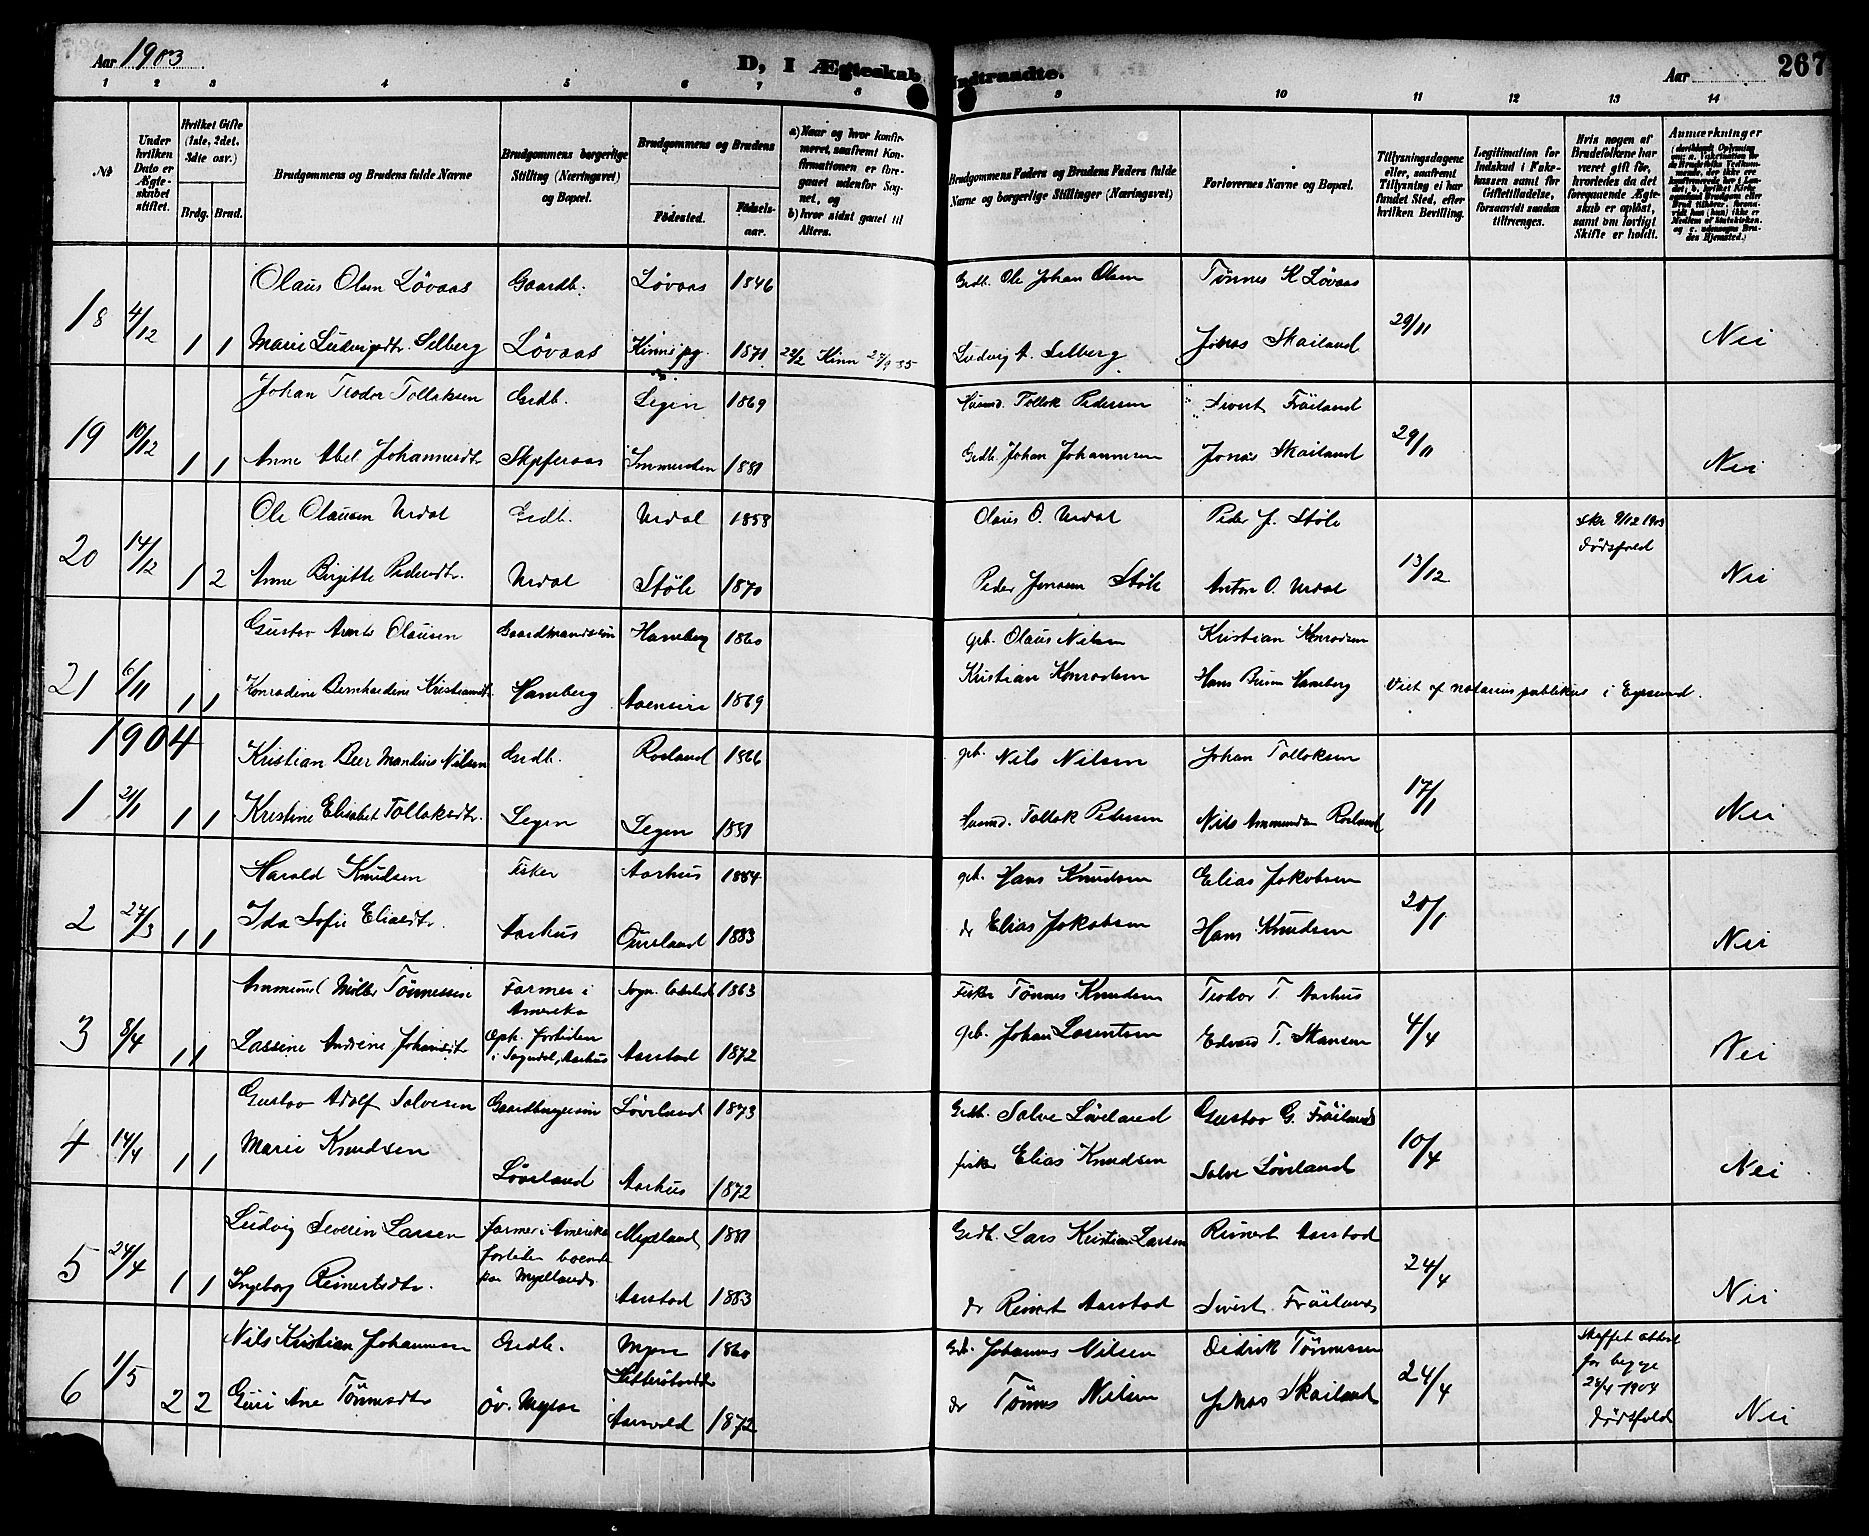 Aar 1903
D, I Ægteskab Indtraadte.
Aar
267
1 2 3 4 5 6 7 8 9 10 11 12 13 14
No
Under hvilken Dato er Ægteskabet stiftet.
Hvilket Gifte (1ste, 2det, 3die osv.)
Brdg. Brud.
Brudgommens og Brudens fulde Navne
Brudgommens borgerlige Stilling (Næringsvei) og Bopæl.
Brudgommens og Brudens
Fødested.
Fødselsaar.
a) Naar og hvor konfirmeret, saafremt Konfirmationen er foregaaet udenfor Sognet, og
b) hvor sidst gaaet til Alters.
Brudgommens Faders og Brudens Faders fulde Navne og borgerlige Stillinger (Næringsvei)
Forlovernes Navne og Bopæl.
Tillysningsdagene eller, saafremt Tillysning ei har fundet Sted, efter hvilken Bevilling.
Legitimation for Indskud i Enkekassen samt for Giftetilladelse, forsaavidt saadan tiltrænges.
Hvis nogen af Brudefolkene har været gift før, hvorledes da det foregaaende Ægteskab er opløst, samt om lovligt Skifte er holdt.
Anmærkninger
18 4/12 1 1
Olaus Olsen Løvaas Gaardb. Løvaas 1846 Grdb. Ole Johan Olsen Tønnes K Løvaas 29/11
Marie Ludvigsdtr. Selberg Løvaas Kinns pg. 1871 Kinn Ludvig A. Selberg Jonas Skailand Nei
19 10/12 1 1
Johan Teodor Tollaksen Grdb. Legen 1869 Husmd. Tollak Pedersen Sivert Fröiland 29/11
Anne Abel Johannesdtr 1881 Grdb. Johan Johannesen Jonas Skailand Nei
20 14/12 1 2
Ole Olausen Urdal Grdb. Urdal 1858 Olaus O. Urdal Peder J. Støle 13/12 Skr 9/12 1903 Dødsfald
Anne Birgitte Pedersdtr. Urdal Støle 1870 Peder Jensen Støle Anton O. Urdal Nei
21 6/11 1 1
Gustav Olausen Gaardmandssøn Hamberg 1860 gb. Olaus Nilsen Kristian Konradsen
Konradine Bernhardine Kristiansdt. Hamberg 1869 Kristian Konradsen Hans Hamberg Viet af notarius publikus i Egersund.
1904
1 21/1 1 1
Kristian Beer Manthius Nilsen Grdb. Rosland 1866 gb. Nils Nilsen Johan Tollaksen 17/1
Kristine Elisabet Tollaksdtr. Legen Legen 1881 Husmd. Tollak Pedersen Nils Ammundsen Rosland Nei
2 27/3 1 1
Harald Knudsen Fisker Aarhus 1884 gb. Hans Knudsen Elias Jakobsen 20/1
Ida Sofie Eliasdtr. Aarhus 1883 do Elias Jakobsen Hans Knudsen Nei
3 8/4 1 1
Ammund Müller Tønnessen Farmer i Amerika 1863 Fisker Tønnes Knudsen Teodor T. Aarhus 4/4
Lassine Andrine Johansdtr Oph. fortiden i Sogndal, Aarhus Aarstad 1872 gb. Johan Lorentsen Edvard T. Skansen Nei
4 14/4 1 1
Gustav Adolf Salvesen Gaardbrugersøn Løvland 1873 Grdb. Salve Løveland Gustav G. Fröiland 10/4
Marie Knudsen Løvland Aarhus 1872 fisker Elias Knudsen Salve Løvland Nei
5 24/4 1 1
Ludvig Severin Larsen farmer i Amerika fortiden boende paa Mydland Mydland 1881 Grdb. Lars Kristian Larsen Reinert Aarstad 24/4
Ingeborg Reinertsdtr. Aarstad 1883 do Reinert Aarstad Sivert Fröiland Nei
6 1/5 2 2
Nils Kristian Johannesen Grdb. 1860 Grdb. Johannes Nilsen Didrik Tønnessen 24/4 Skiftet attest for begge 28/4 1904 Dødsfald
Guri Ane Tønnesdtr 1872 do Tønnes Nilsen Jonas Skailand Nei